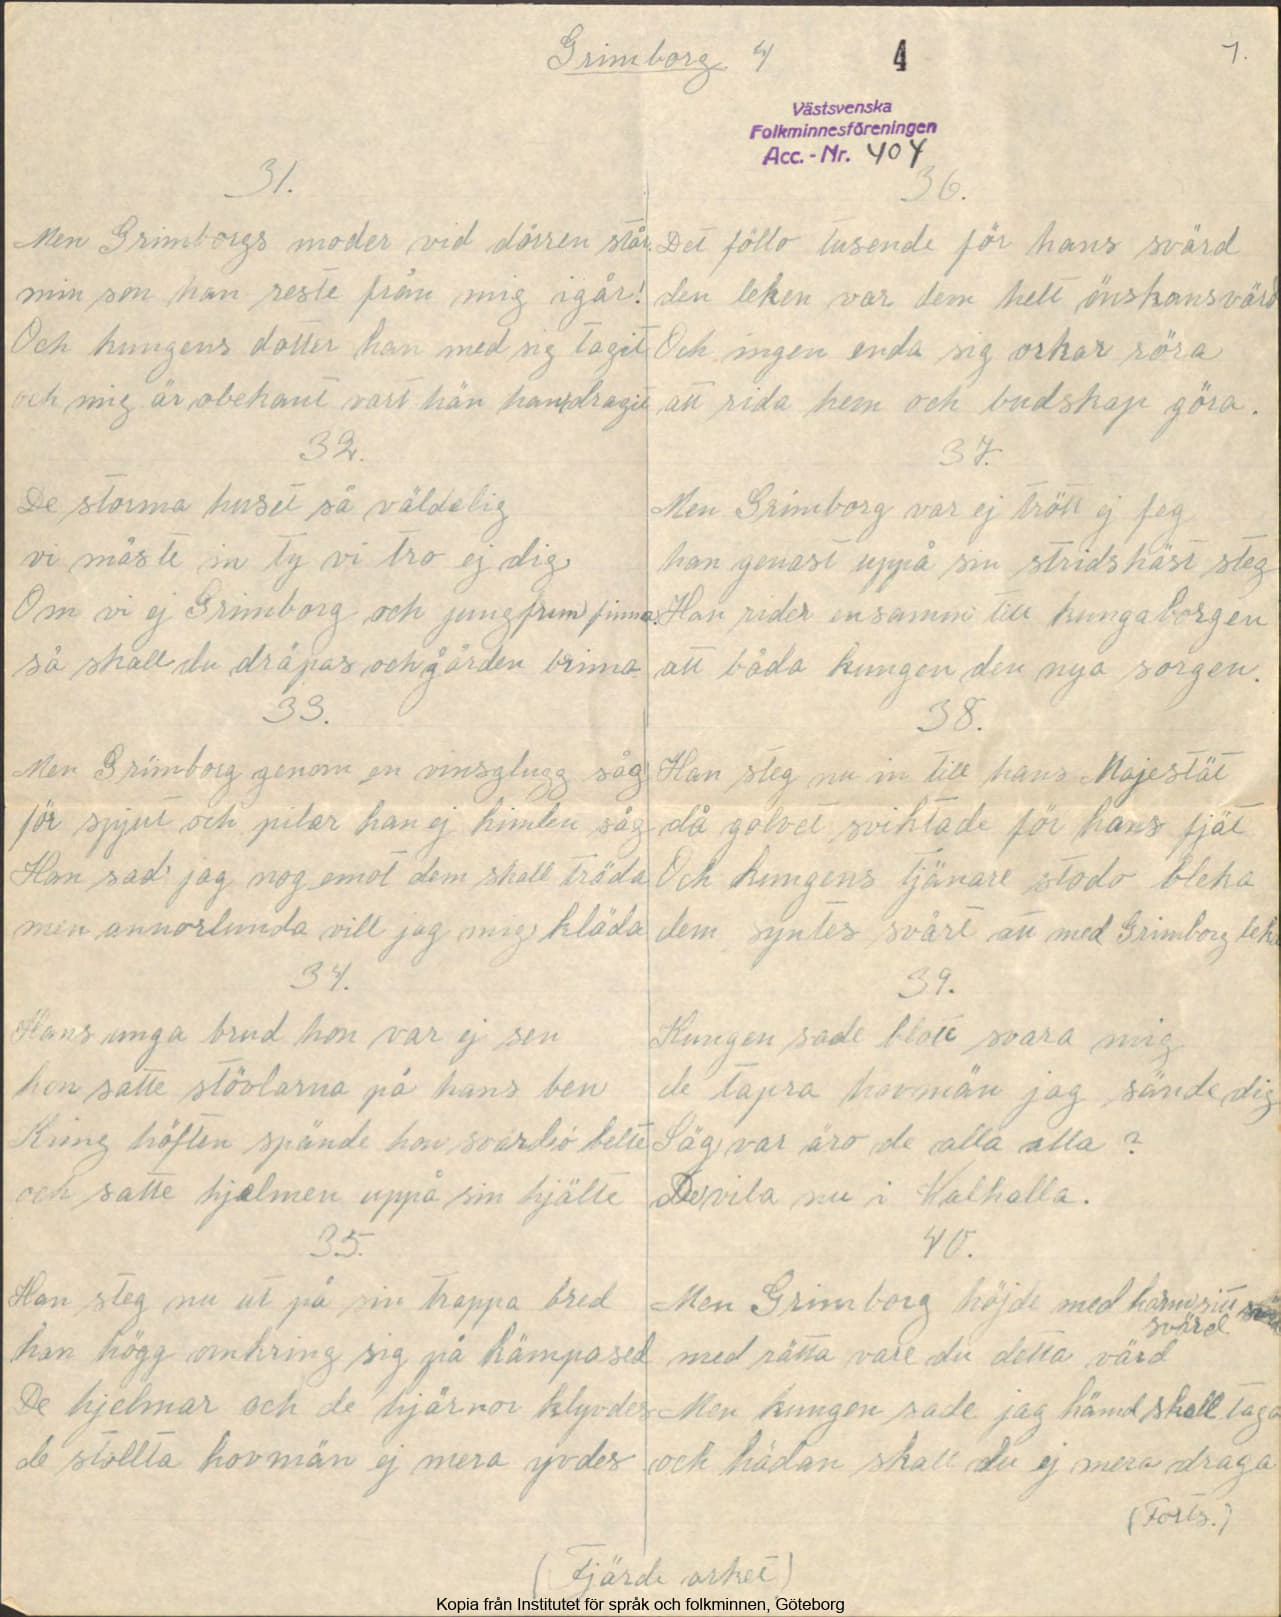 Grimborg 4
4
7.
Västsvenska
Folkminnesföreningen
Acc.-Nr. 404
31.
Men Grimborgs moder vid dörren står
min son han reste från mig igår!
Och kungens dotter han med sig tagit
och mig är obekant vart hän han dragit
32.
De storma huset så väldelig
vi måste in ty vi tro ej dig
Om vi ej Grimborg och jungfrun finna
så skall du dräpas och gården brinna
33.
Men Grimborg genom en vinsglugg såg
för spjut och pilar han ej himlen såg
Han sad' jag nog emot dem skall träda
men annorlunda vill jag mig kläda
34.
Hans unga brud hon var ej sen
hon satte stövlarna på hans ben
Kring höften spände hon svärdsbelte
och satte hjelmen uppå sin hjälte
35.
Han steg nu ut på sin trappa bred
han högg omkring sig på kämpased
De hjelmar och de hjärnor klyvdes
de stollta hovmän ej mera yvdes
36.
Det föllo tusende för hans svärd
den leken var dem helt önskansvärd
Och ingen enda sig orkar röra
att rida hem och budskap göra.
37.
Men Grimborg var ej trött ej feg
han genast uppå sin stridshäst steg
Han rider ensamm till kungaborgen
att båda kungen den nya sorgen.
38.
Han steg nu in till hans Majestät
då golvet sviktade för hans fjät
Och kungens tjänare stodo bleka
dem syntes svårt att med Grimborg leka
39.
Kungen sade blott svara mig
de tapra hovmän jag sände dig
Säg var äro de alla alla ?
De vila nu i Valhalla.
40.
Men Grimborg höjde med harm sitt
svärd
med rätta vare du detta värd
Men kungen sade jag hämd skall taga
och hädan skall du ej mera draga
(Forts.)
(Fjärde arket)
Kopia från Institutet för språk och folkminnen, Göteborg